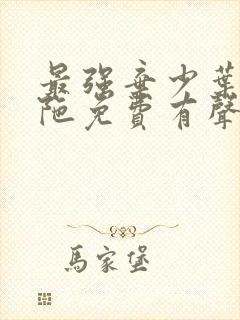 最强弃少葉
陁免費有聲
馬家堡